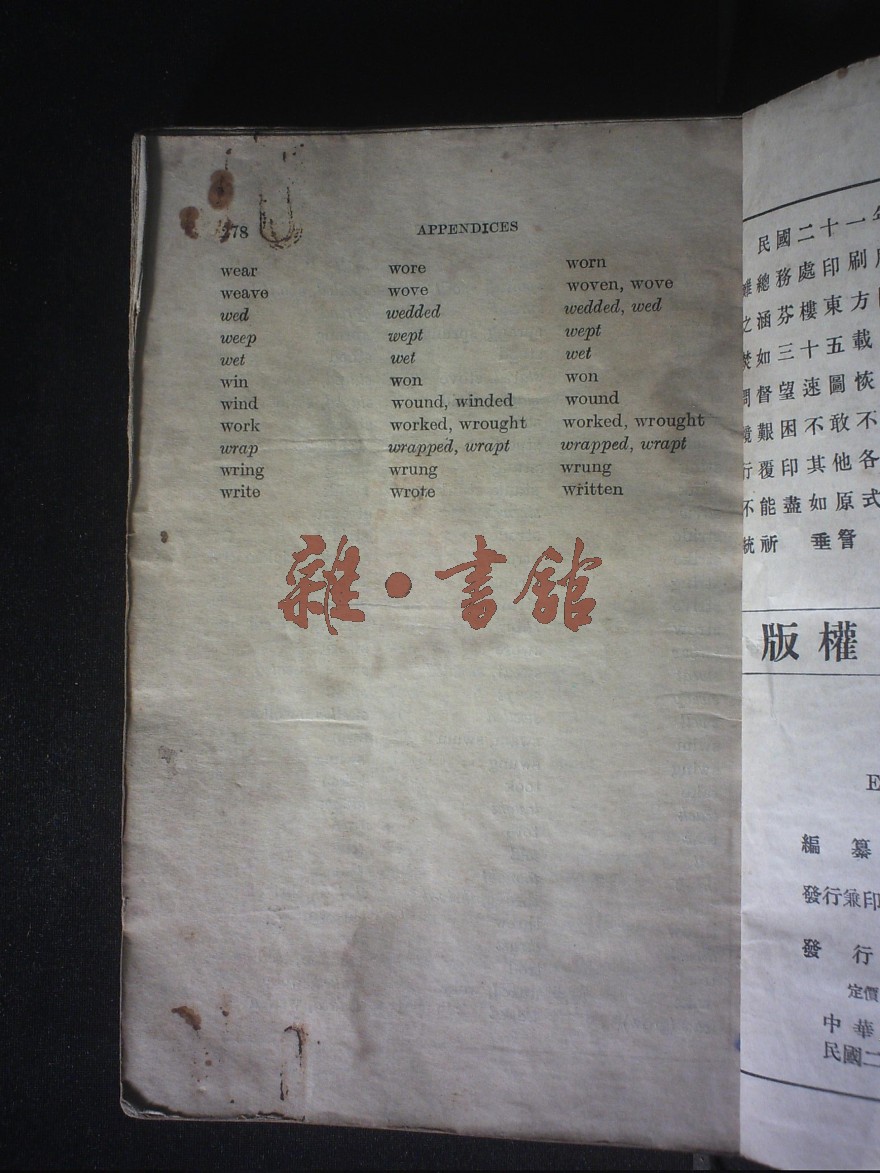 78 APPENDICES
wear wore worn
weave wove woven, wove
wed wedded wedded, wed
weep wept wept
wet wet wet
win won won
wind wound, winded wound
work worked, wrought worked, wrought
wrap wrapped, wrapt wrapped, wrapt
wring wrung wrung
write wrote written
雜·書館
民國二十一年
總務處印刷
之涵芬樓東方
焚如三十五載
督望速圖恢
艱困不敢不
行覆印其他各
不能盡如原式
統祈 垂詧
版權
E
編纂
發行兼印
發行
定價
中華
民國二